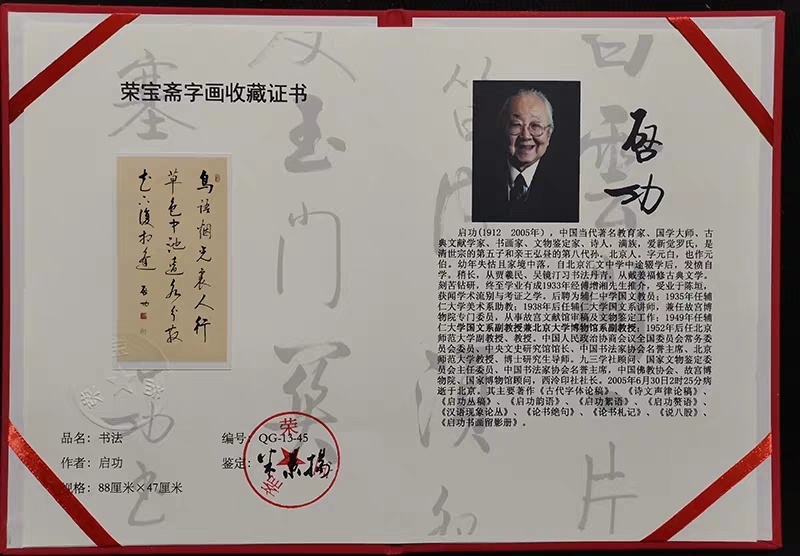 荣宝斋字画收藏证书
鸟语烟光里人行
草色中池边各分散
花下复相逢 启功
品名：书法 编号：QG-13-45
作者：启功 鉴定：米景扬
规格：88厘米×47厘米
荣
斋
启功
启功(1912 2005年)，中国当代著名教育家、国学大师、古
典文献学家、书画家、文物鉴定家、诗人，满族，爱新觉罗氏，是
清世宗的第五子和亲王弘昼的第八代孙。北京人。字元白，也作元
伯。幼年失怙且家境中落，自北京汇文中学中途辍学后，发愤自
学。稍长，从贾羲民、吴镜汀习书法丹青，从戴姜福修古典文学。
刻苦钻研，终至学业有成1933年经傅增湘先生推介，受业于陈垣，
获闻学术流别与考证之学。后聘为辅仁中学国文教员；1935年任辅
仁大学美术系助教；1938年后任辅仁大学国文系讲师，兼任故宫博
物院专门委员，从事故宫文献馆审稿及文物鉴定工作；1949年任辅
仁大学国文系副教授兼北京大学博物馆系副教授；1952年后任北京
师范大学副教授、教授。中国人民政治协商会议全国委员会常务委
员会委员、中央文史研究馆馆长、中国书法家协会名誉主席，北京
师范大学教授、博士研究生导师。九三学社顾问、国家文物鉴定委
员会主任委员、中国书法家协会名誉主席，中国佛教协会、故宫博
物院、国家博物馆顾问，西泠印社社长。2005年6月30日2时25分病
逝于北京。其主要著作《古代字体论稿》、《诗文声律论稿》、
《启功丛稿》、《启功韵语》、《启功絮语》、《启功赘语》、
《汉语现象论丛》、《论书绝句》、《论书札记》、《说八股》、
《启功书画留影册》。